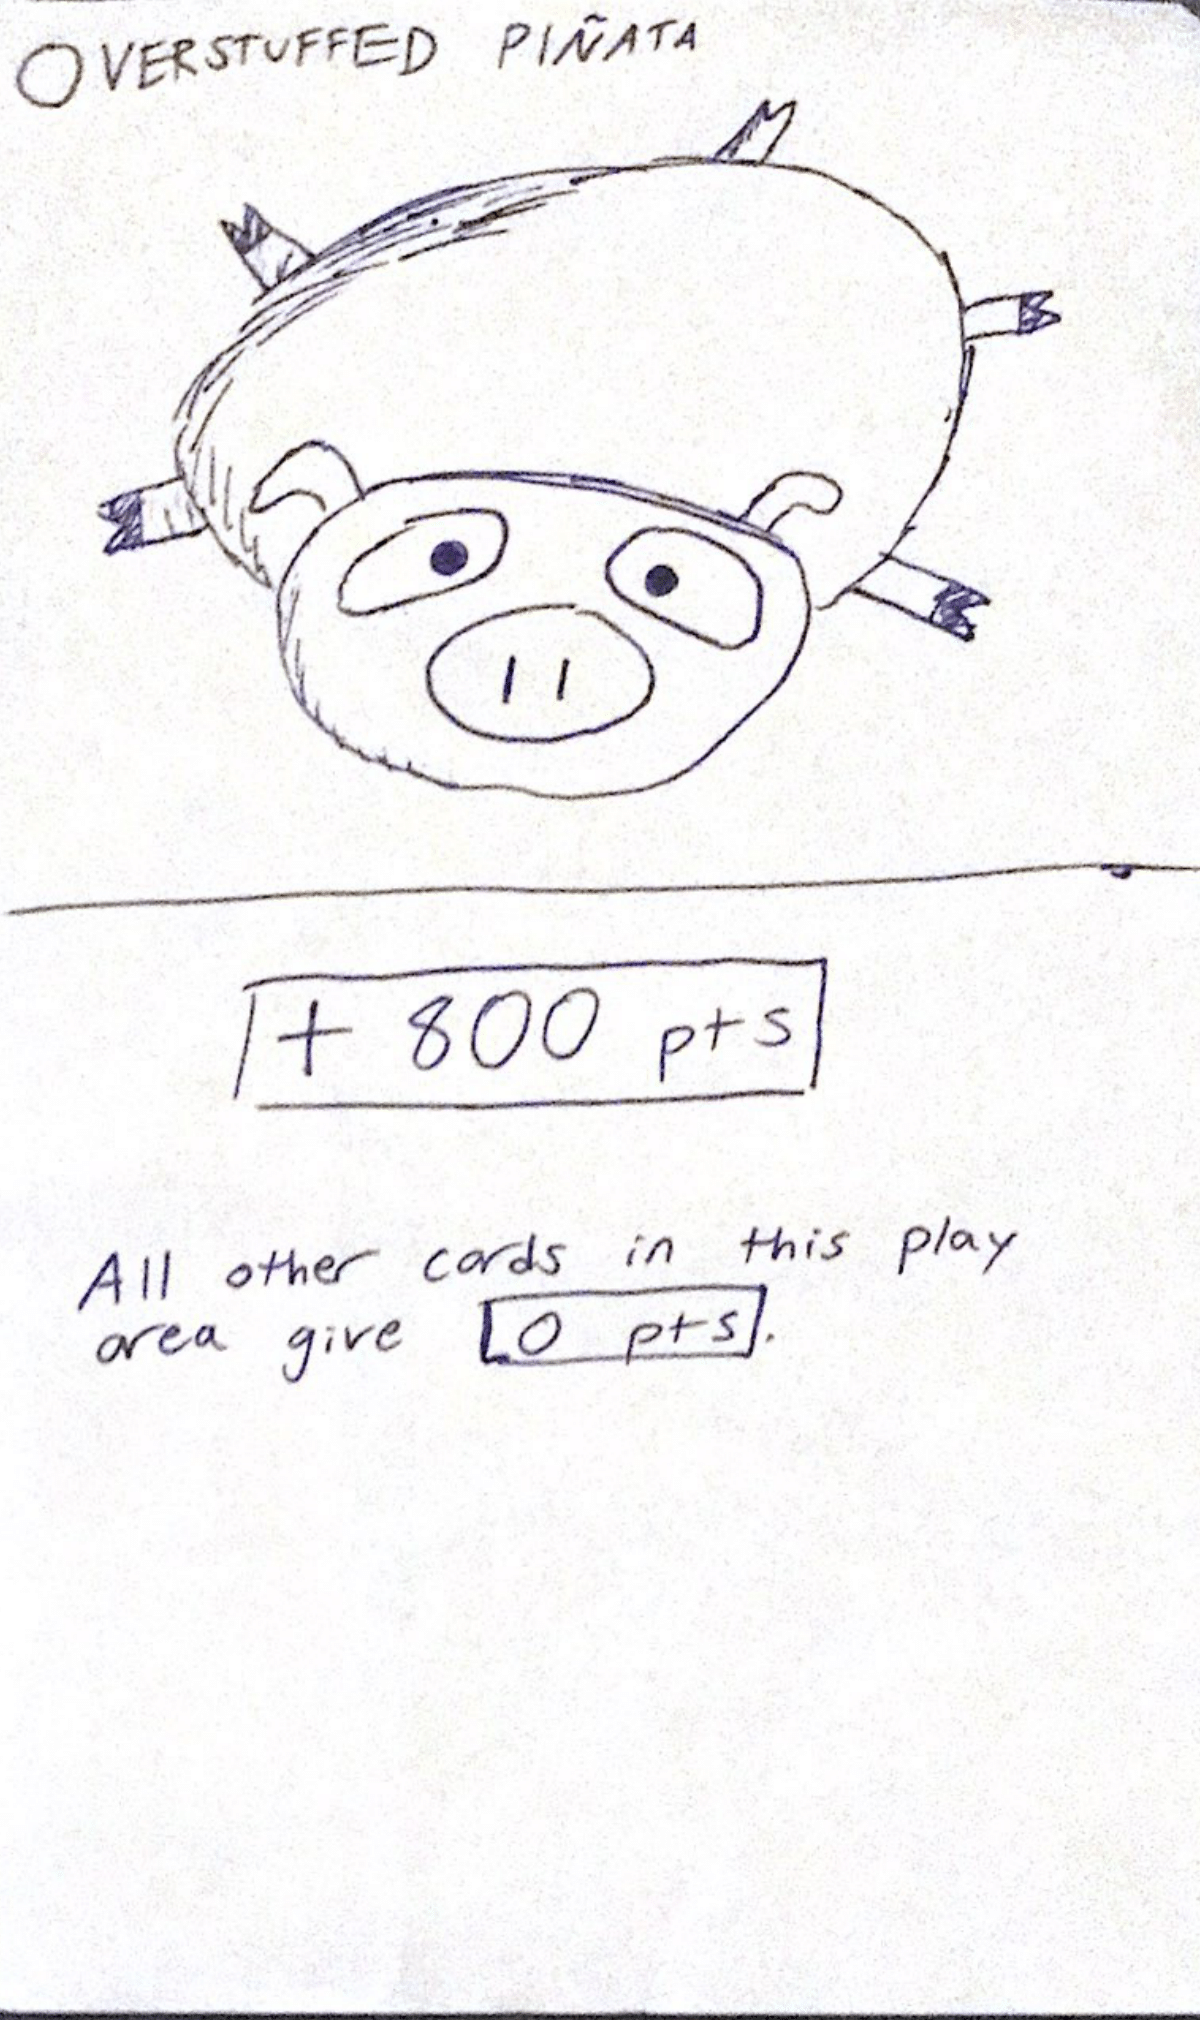 OVERSTUFFED PIÑATA
+ 800 pts
All other cards in this play
area give 0 pts.